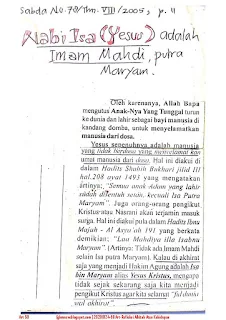 Sabda No.78/Thn. VIII/2005, p. 11
Nabi Isa (Yesus) adalah
Imam Mahdi, putra
Maryam.
Oleh karenanya, Allah Bapa
mengutus Anak-Nya Yang Tunggal turun
ke dunia dan lahir sebagai bayi manusia di
kandang domba, untuk menyelamatkan
manusia dari dosa.
Yesus sesungguhnya adalah manusia
yang tidak berdosa yang menyelamatkan
umat manusia dari dosa. Hal ini diakui di
dalam Hadits Shahih Bukhari jilid III
hal.208 ayat 1493 yang mengatakan
artinya; "Semua anak Adam yang lahir
sudah disentuh setan, kecuali Isa Putra
Maryam". Juga orang-orang pengikut
Kristus atau Nasrani akan terjamin masuk
surga. Hal ini diakui pula dalam Hadits Ibnu
Majah - Al Asqa'ah 191 yang berkata
demikian: "Laa Mahdiyya illa Isabnu
Maryam". (Artinya: Tidak ada Imam Mahdi
selain Isa putra Maryam). Kalau di akhirat
saja yang menjadi Hakim Agung adalah Isa
bin Maryam alias Yesus Kristus, mengapa
tidak sejak sekarang saja kita menjadi
pengikut Kristus agar kita selamat